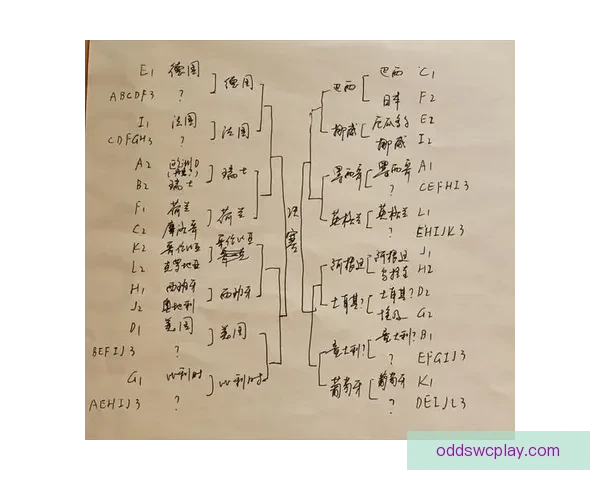 E1 德国
ABCDF3 ?
德国
I1 法国
CDFGH3 ?
法国
A2 欧洲D
B2 瑞士
瑞士
F1 荷兰
C2 摩洛哥
荷兰
K2 哥伦比亚
L2 克罗地亚
哥伦比亚
H1 西班牙
J2 奥地利
西班牙
D1 美国
BEFIJ3 ?
美国
G1 比利时
AEHIJ3 ?
比利时
决赛
巴西
巴西 C1
日本 F2
挪威
厄瓜多尔 E2
挪威 I2
墨西哥
墨西哥 A1
? CEFHI3
英格兰
英格兰 L1
? EHIJK3
阿根廷
阿根廷 J1
乌拉圭 H2
土耳其?
土耳其? D2
埃及 G2
意大利?
意大利? B1
? EFGIJ3
葡萄牙
葡萄牙 K1
? DEIJL3
oddswcplay.com